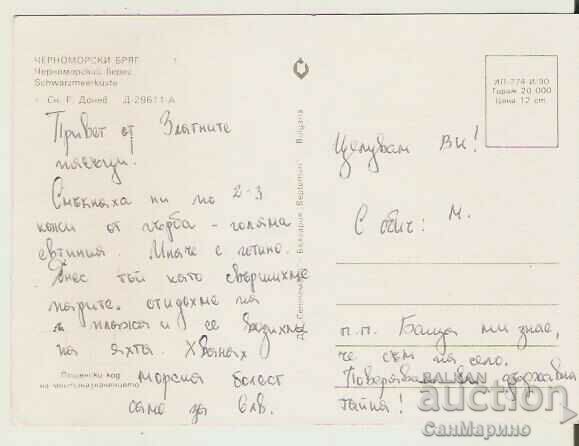 ЧЕРНОМОРСКИ БРЯГ
Черноморский берег
Schwarzmeerküste
Сн. Г. Донев Д-29611-А
Привет от Златните
пясъци.
Смъкнаха ни по 2-3
кожи от гърба - голяма
евтиния. Иначе е готино.
Днес тъй като свършихме
парите, отидохме на
плажа и се возихме
на яхта. Хванах
морска болест
само за 6 лв.
Пощенски код
на местоназначението
България Bulgaria
ИП-774-И/90
Тираж 20 000
Цена 12 ст.
Целувам Ви!
С обич: М.
п.п. Баща ми знае,
че съм на село.
Поверявам ви държавна
тайна!
BALKAN
auction
СанМарино